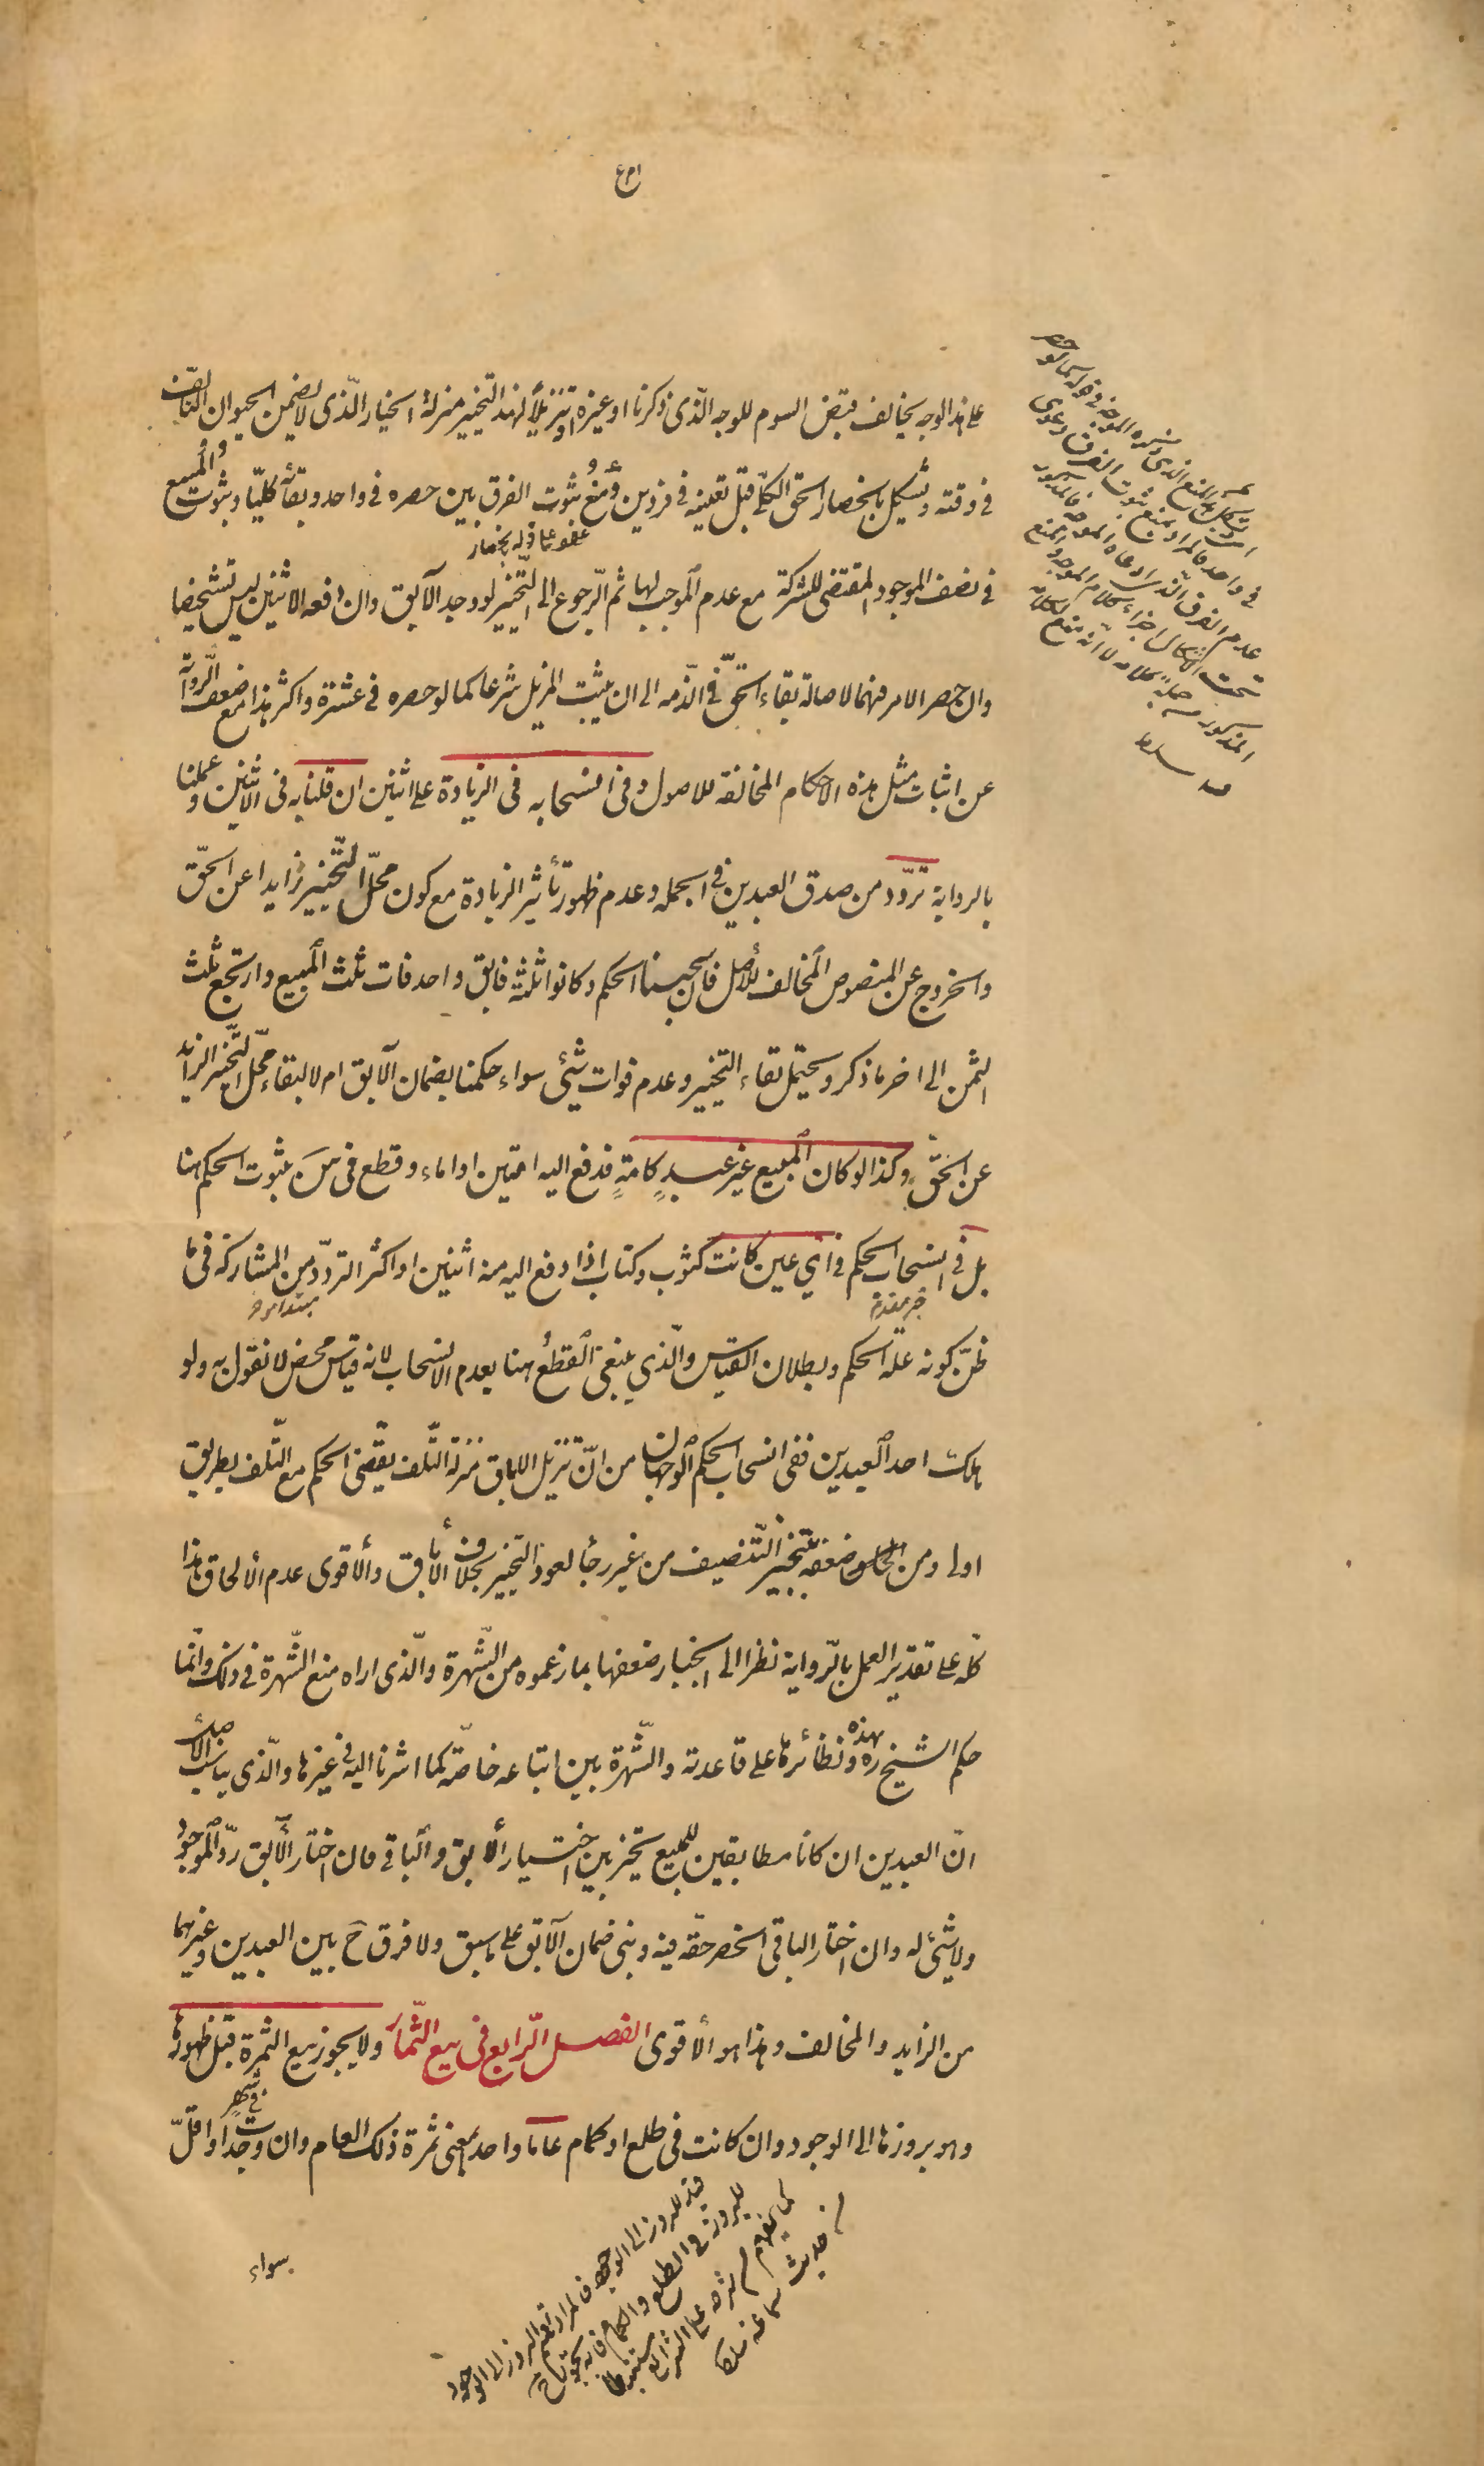 على هذا الوجه يخالف قبض السوم للوجه الذى ذكرنا او غيره او تنزيلا لهذا التخيير منزلة الخيار الذى لا يضمن الحيوان التالف
فى وقته ويشكل بانحصار الحق الكلى قبل تعيينه فى فردين ومنع ثبوت الفرق بين حصره فى واحد وبقائه كليا وثبوت المبيع
فى نصف الموجود المقتضى للشركة مع عدم الموجب لها ثم الرجوع الى التخيير لو وجد الآبق وان دفعه الاثنين ليس تشخيصا
وان حصر الامر فيهما لاصالة بقاء الحق فى الذمه الى ان يثبت المزيل شرعا كما لو حصره فى عشرة واكثر هذا مع ضعف الرواية
عن اثبات مثل هذه الاحكام المخالفة للاصول وفى انسحابه فى الزيادة على اثنين ان قلنا به فى الاثنين وعملنا
بالرواية تردد من صدق العبدين فى الجمله وعدم ظهور تأثير الزيادة مع كون محل التخيير زايدا عن الحق
والخروج عن المنصوص المخالف للأصل فان سحبنا الحكم وكانوا ثلثة فابق واحد فات ثلث المبيع وارتجع ثلث
الثمن الى اخر ما ذكر ويحتمل بقاء التخيير وعدم فوات شئى سواء حكمنا بضمان الآبق ام لا لبقاء محل التخيير الزايد
عن الحق وكذا لو كان المبيع غير عبد كامة فدفع اليه امتين او اماء وقطع فى س بثبوت الحكم هنا
بل فى انسحاب الحكم فى اى عين كانت كثوب وكتاب اذا دفع اليه منه اثنين او اكثر التردد من المشاركة فى ما
خبر مقدم
مبتدا مؤخر
ظن كونه علة الحكم وبطلان القياس والذى ينبغى القطع هنا بعدم الانسحاب لانه قياس محض لا نقول به ولو
هلك احد العبدين ففى انسحاب الحكم الوجهان من ان تنزيل الاباق منزلة التلف يقتضى الحكم مع التلف بطريق
اولى ومن ضعفه بتنجيز التنصيف من غير رجأ لعود التخيير بخلاف الأباق والأقوى عدم الألحاق هذا
كله على تقدير العمل بالرواية نظرا الى انجبار ضعفها بما زعموه من الشهرة والذى اراه منع الشهرة فى ذلك وانما
حكم الشيخ ره بهذه ونظائرها على قاعدته والشهرة بين اتباعه خاصة كما اشرنا اليه فى غيرها والذى يناسب الاصل
ان العبدين ان كانا مطابقين للمبيع تخير بين اختيار الآبق والباقى فان اختار الآبق رد الموجود
ولا شئ له وان اختار الباقى انحصر حقه فيه وبنى ضمان الآبق على ما سبق ولا فرق ح بين العبدين وغيرهما
من الزايد والمخالف وهذا هو الأقوى الفصل الرابع فى بيع الثمار ولا يجوز بيع الثمرة قبل ظهورها
وهو بروزها الى الوجود وان كانت فى طلع او كمام عاما واحدا بمعنى ثمرة ذلك العام وان وجدت فى شهر او اقل
سواء